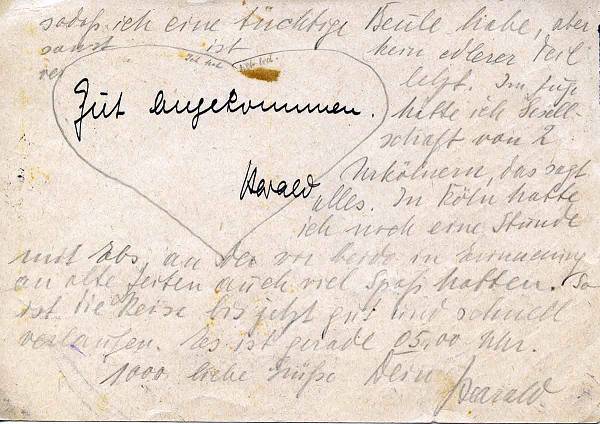 sodaß ich eine tüchtige Beule habe, aber
sonst ist kein edlerer Teil
ver letzt. Im Zuge
Gut angekommen.
hatte ich Gesell-
schaft von 2
Urkölnern, das sagt
Harald
alles. In Köln hatte
ich noch eine Stunde
mit Ebs, an der wir beide in Erinnerung
an alte Zeiten auch viel Spaß hatten. So
ist die Reise bis jetzt gut und schnell
verlaufen. Es ist gerade 05,00 Uhr.
1000 liebe Grüße Dein Harald.